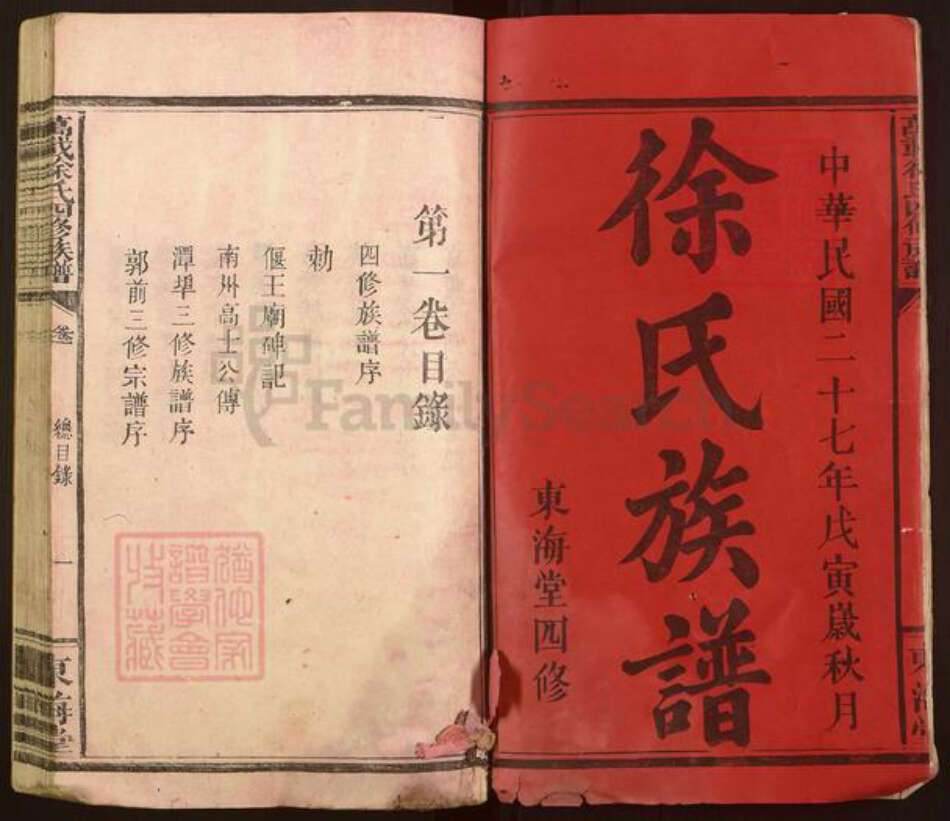 中華民國二十七年戊寅歲秋月
徐氏族譜
東海堂四修
第一卷目錄
四修族譜序
勅
偃王廟碑記
南州高士公傳
潭埠三修族譜序
郭前三修宗譜序
萬載徐氏四修族譜
總目錄
一
東海堂
FamilySearch